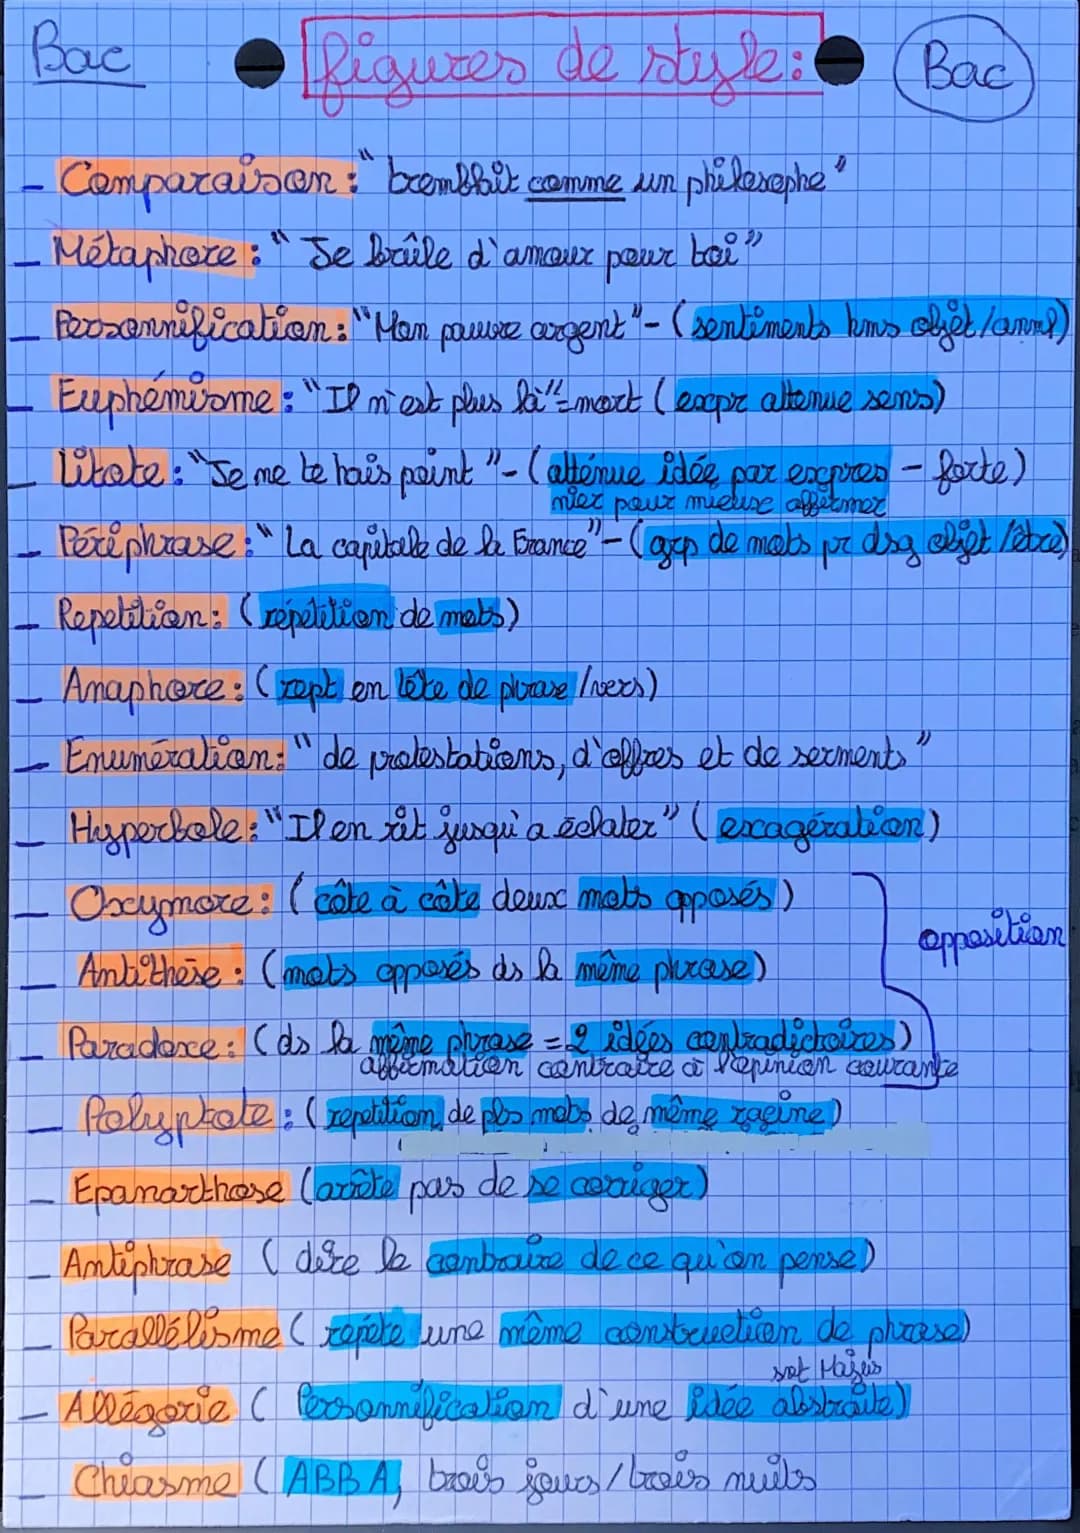 Bac
figures de style :
Bac
- Comparaison : "tremblait comme un philosophe"
- Métaphore : "Je brûle d'amour pour toi"
- Personnification : "Mon pauvre argent" - (sentiments hms objet/animl)
- Euphémisme : "Il n'est plus là" = mort (expr attenue sens)
- Litote : "Je ne te hais point" - (atténue idée par expres - forte)
nier pour mieux affirmer
- Périphrase : "La capitale de la France" - (grp de mots pr dsg objet/être)
- Repetition : (répétition de mots)
- Anaphore : (rept en tête de phrase/vers)
- Enumération : "de protestations, d'offres et de serments"
- Hyperbole : "Il en rit jusqu'a éclater" (exagération)
- Oxymore : (côte à côte deux mots opposés)
opposition
- Antithèse : (mots opposés ds la même phrase)
- Paradoxe : (ds la même phrase = 2 idées contradictoires)
affirmation contraire à l'opinion courante
- Polyptote : (repetition de pls mots de même racine)
- Epanarthose (arrête pas de se corriger)
- Antiphrase (dire le contraire de ce qu'on pense)
- Parallélisme (répète une même construction de phrase)
svt Majus
- Allégorie (Personnification d'une idée abstraite)
- Chiasme (ABBA, trois jours/trois nuits